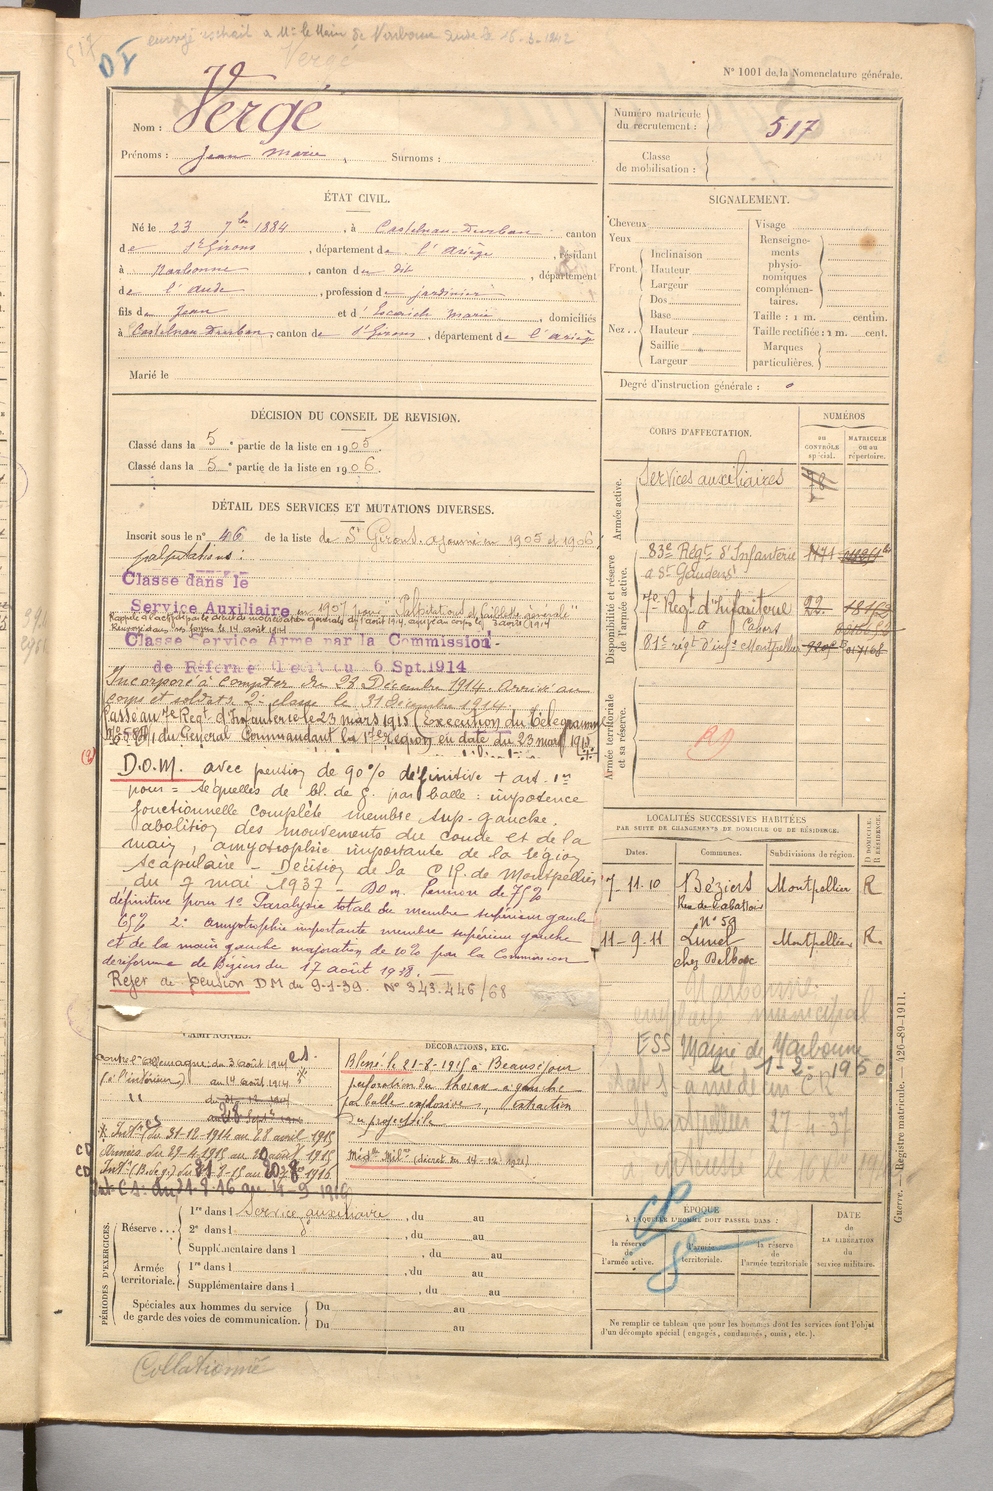 517
DT envoyé extrait a Mr le Maire de Narbonne le 16-3-1942
Vergé
N° 1001 de la Nomenclature générale.
Nom : Vergé
Prénoms : Jean Marie , Surnoms :
Numéro matricule du recrutement : 517
Classe de mobilisation :
ÉTAT CIVIL.
Né le 23 7bre 1884 , à Castelnau-Durban canton
de St Girons , département de l'ariège , résidant
à Narbonne , canton du dit , département
de l'aude , profession de jardinier
fils de Jean et d' Escaich Marie , domiciliés
à Castelnau-Durban, canton de St Girons , département de l'ariège
Marié le
SIGNALEMENT.
Cheveux
Yeux
Front
Inclinaison
Hauteur
Largeur
Nez
Dos
Base
Hauteur
Saillie
Largeur
Visage
Renseignements physionomiques complémentaires.
Taille : 1 m. centim.
Taille rectifiée : 1 m. cent.
Marques particulières.
Degré d'instruction générale : 0
DÉCISION DU CONSEIL DE REVISION.
Classé dans la 5e partie de la liste en 1905
Classé dans la 5e partie de la liste en 1906
DÉTAIL DES SERVICES ET MUTATIONS DIVERSES.
Inscrit sous le n° 46 de la liste de St Girons. ajourné en 1905 et 1906,
palpitations :
Classé dans le
Service Auxiliaire en 1907 pour "Palpitations et faiblesse générale"
Rappelé à l'activité par le décret de mobilisation générale du 1 août 1914, arrivé au corps le 3 août 1914
Renvoyé dans ses foyers le 14 août 1914
Classé Service Armé par la Commission
de Réforme 6 Spt. 1914
Incorporé à compter du 23 Décembre 1914. arrivé au
corps et soldat de 2e classe le 31 Décembre 1914.
Passé au 7e Régt d'Infanterie le 23 mars 1915 (Exécution du Télégramme
du Général Commandant la 17e Région) en date du 23 mars 1915
D.O.M. avec pension de 90% définitive + art. 1er
pour = séquelles de bl. de g. par balle : impotence
fonctionnelle complète membre sup. gauche.
abolition des mouvements du coude et de la
main, amyotrophie importante de la région
scapulaire - Décision de la C.R. de Montpellier
du 7 mai 1937 - Dom. Pension de 75%
définitive pour 1° Paralysie totale du membre supérieur gauche
65% 2° amyotrophie importante membre supérieur gauche
et de la main gauche majoration de 10% par la Commission
de réforme de Béziers du 17 août 1938.
Rejet de pension DM du 9-1-39. N° 343.446/68
CORPS D'AFFECTATION.
NUMÉROS
au contrôle spécial.
matricule ou au répertoire.
Armée active.
Services auxiliaires
Disponibilité et réserve de l'armée active.
83e Régt d'Infanterie 1171
a St Gaudens
7e Régt d'Infanterie 22.
a Cahors
81e régt d'infie Montpellier
Armée territoriale et sa réserve.
RD
LOCALITÉS SUCCESSIVES HABITÉES
PAR SUITE DE CHANGEMENTS DE DOMICILE OU DE RÉSIDENCE.
Dates. Communes. Subdivisions de région. D DOMICILE. R RÉSIDENCE.
7-11-10 Béziers Montpellier R
Rue de l'abattoir
N° 59
11-9-11 Lunel Montpellier R.
chez Delbosc
Narbonne
employé municipal
ESS Mairie de Narbonne
le 1-2-1950
médecin CR
Montpellier 27-4-37
CAMPAGNES.
contre l'allemagne du 3 août 1914
(a l'intérieur) au 14 août 1914
" du 31-12-1914
Int. CS du 31-12-1914 au 28 avril 1915
Armées du 29-4-1915 au 20 août 1915
Int. CS. du 21-9-16 au 14-9-1919
DÉCORATIONS, ETC.
Blessé le 21-8-1915 à Beauséjour
perforation du thorax a gauche
par balle explosive, extraction
du projectile.
Médlle Milre (décret du 14-12-1921)
PÉRIODES D'EXERCICES.
Réserve
1re dans l Service auxiliaire , du au
2e dans l , du au
Supplémentaire dans l , du au
Armée territoriale.
1re dans l , du au
Supplémentaire dans l , du au
Spéciales aux hommes du service de garde des voies de communication.
Du au
Du au
ÉPOQUE
À LAQUELLE L'HOMME DOIT PASSER DANS :
la réserve de l'armée active.
l'armée territoriale.
la réserve de l'armée territoriale
DATE de LA LIBÉRATION du service militaire.
Ne remplir ce tableau que pour les hommes dont les services font l'objet
d'un décompte spécial (engagés, condamnés, omis, etc.).
Guerre. — Registre matricule. — 426-89-1911.
Collationné